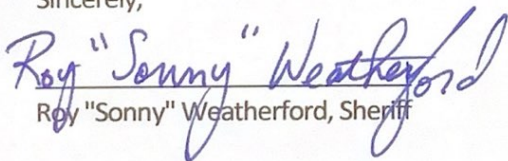 Sincerely,
Roy "Sonny" Weatherford
Roy "Sonny" Weatherford, Sheriff